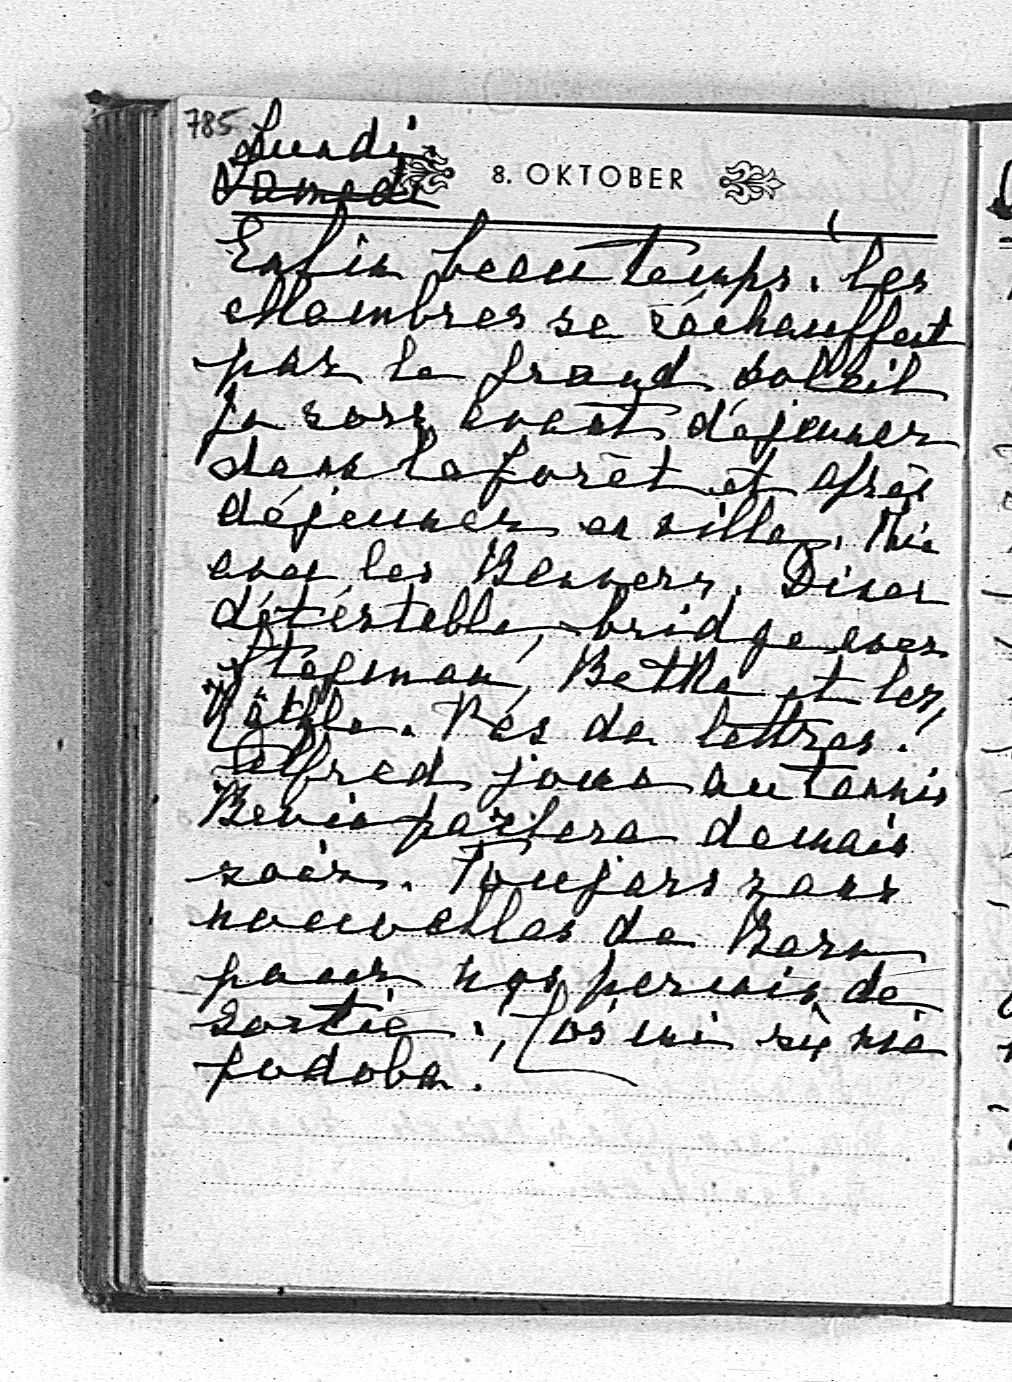 785
Lundi
Samedi
8. OKTOBER
Enfin beau temps. Les
chambres se réchauffent
par le grand soleil
je sors avant déjeuner
dans la forêt et après
déjeuner en ville.
avec les Dîner
détestable, bridge avec
Stegman, Bethe et les
Pas de lettres.
Alfred joue au tennis
partira demain
soir. Toujours sans
nouvelles de Bern
pour nos permis de
sortie. Coś mi się nie
podoba.